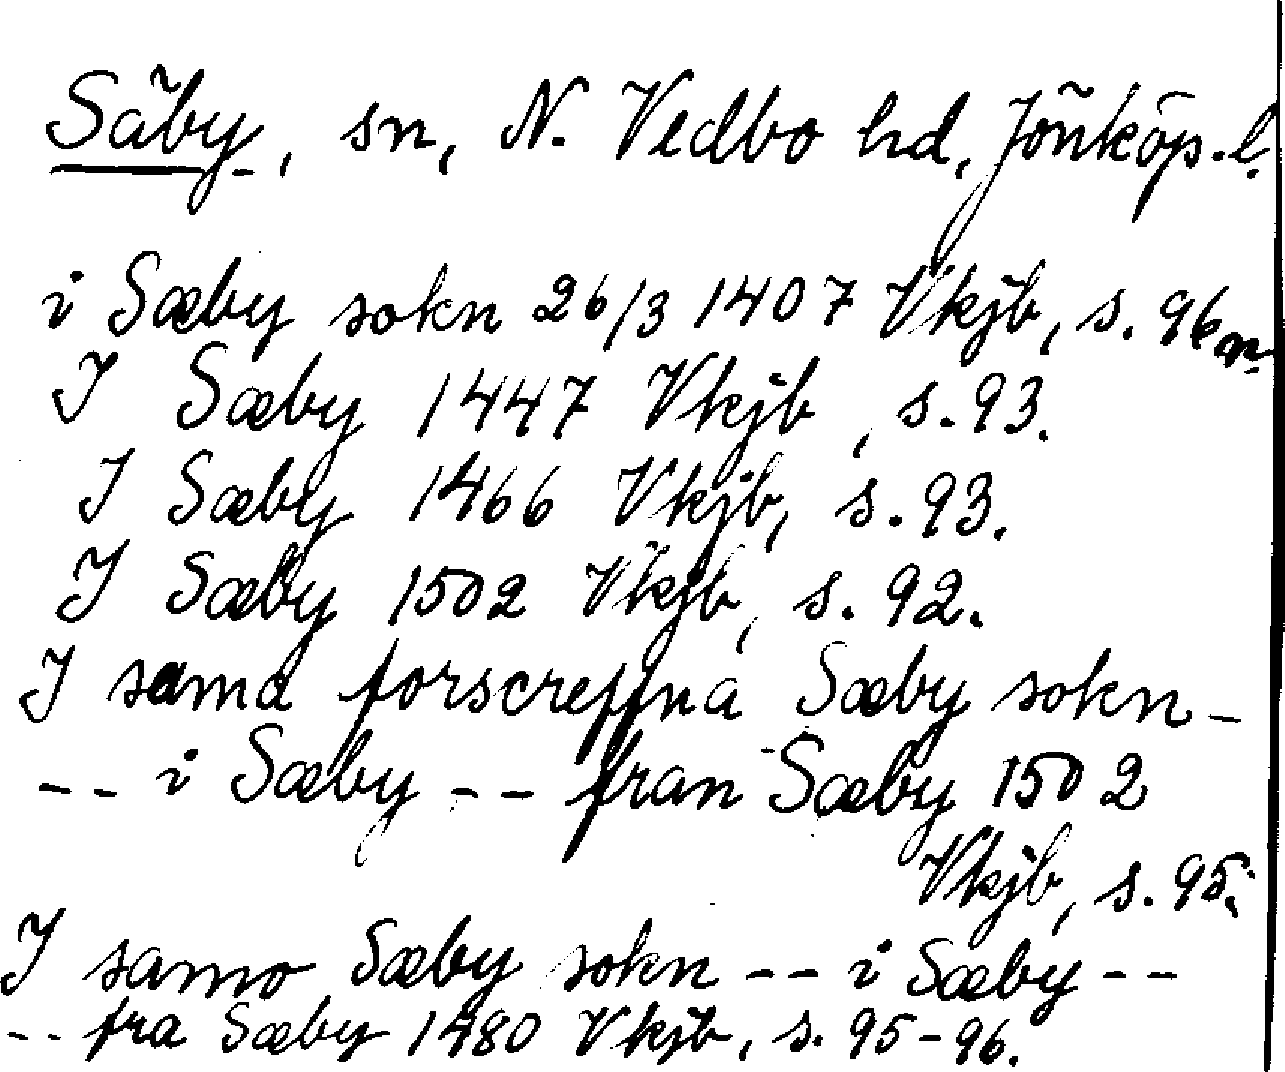 Säby, sn, N. Vedbo hd, Jönköp. l.
i Sæby sokn 26/3 1407 Vkjb, s. 96 n.
I Sæby 1447 Vkjb, s. 93.
I Sæby 1466 Vkjb, s. 93.
I Sæby 1502 Vkjb, s. 92.
I sama forscreffna Sæby sokn -
-- i Sæby -- fran Sæby 1502
Vkjb, s. 95.
I samo Sæby sokn -- i Sæby --
-- fra Sæby 1480 Vkjb, s. 95-96.